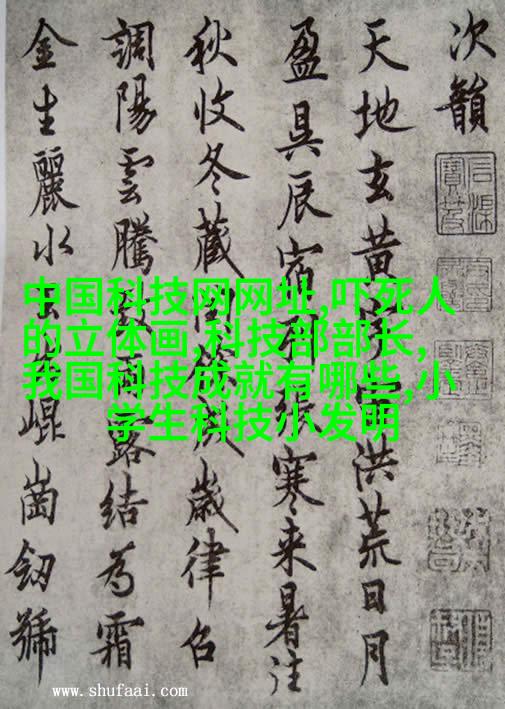 次韻
天地玄黄洪荒日月
盈昃辰宿張寒来暑往
秋收冬蔵閏歳律吕
調陽雲騰雨露結為霜
金生麗水崐崗劒號
中国科技网网址,吓死人
的立体画,科技部部长,
我国科技成就有哪些,小
学生科技小发明
www.shufaai.com